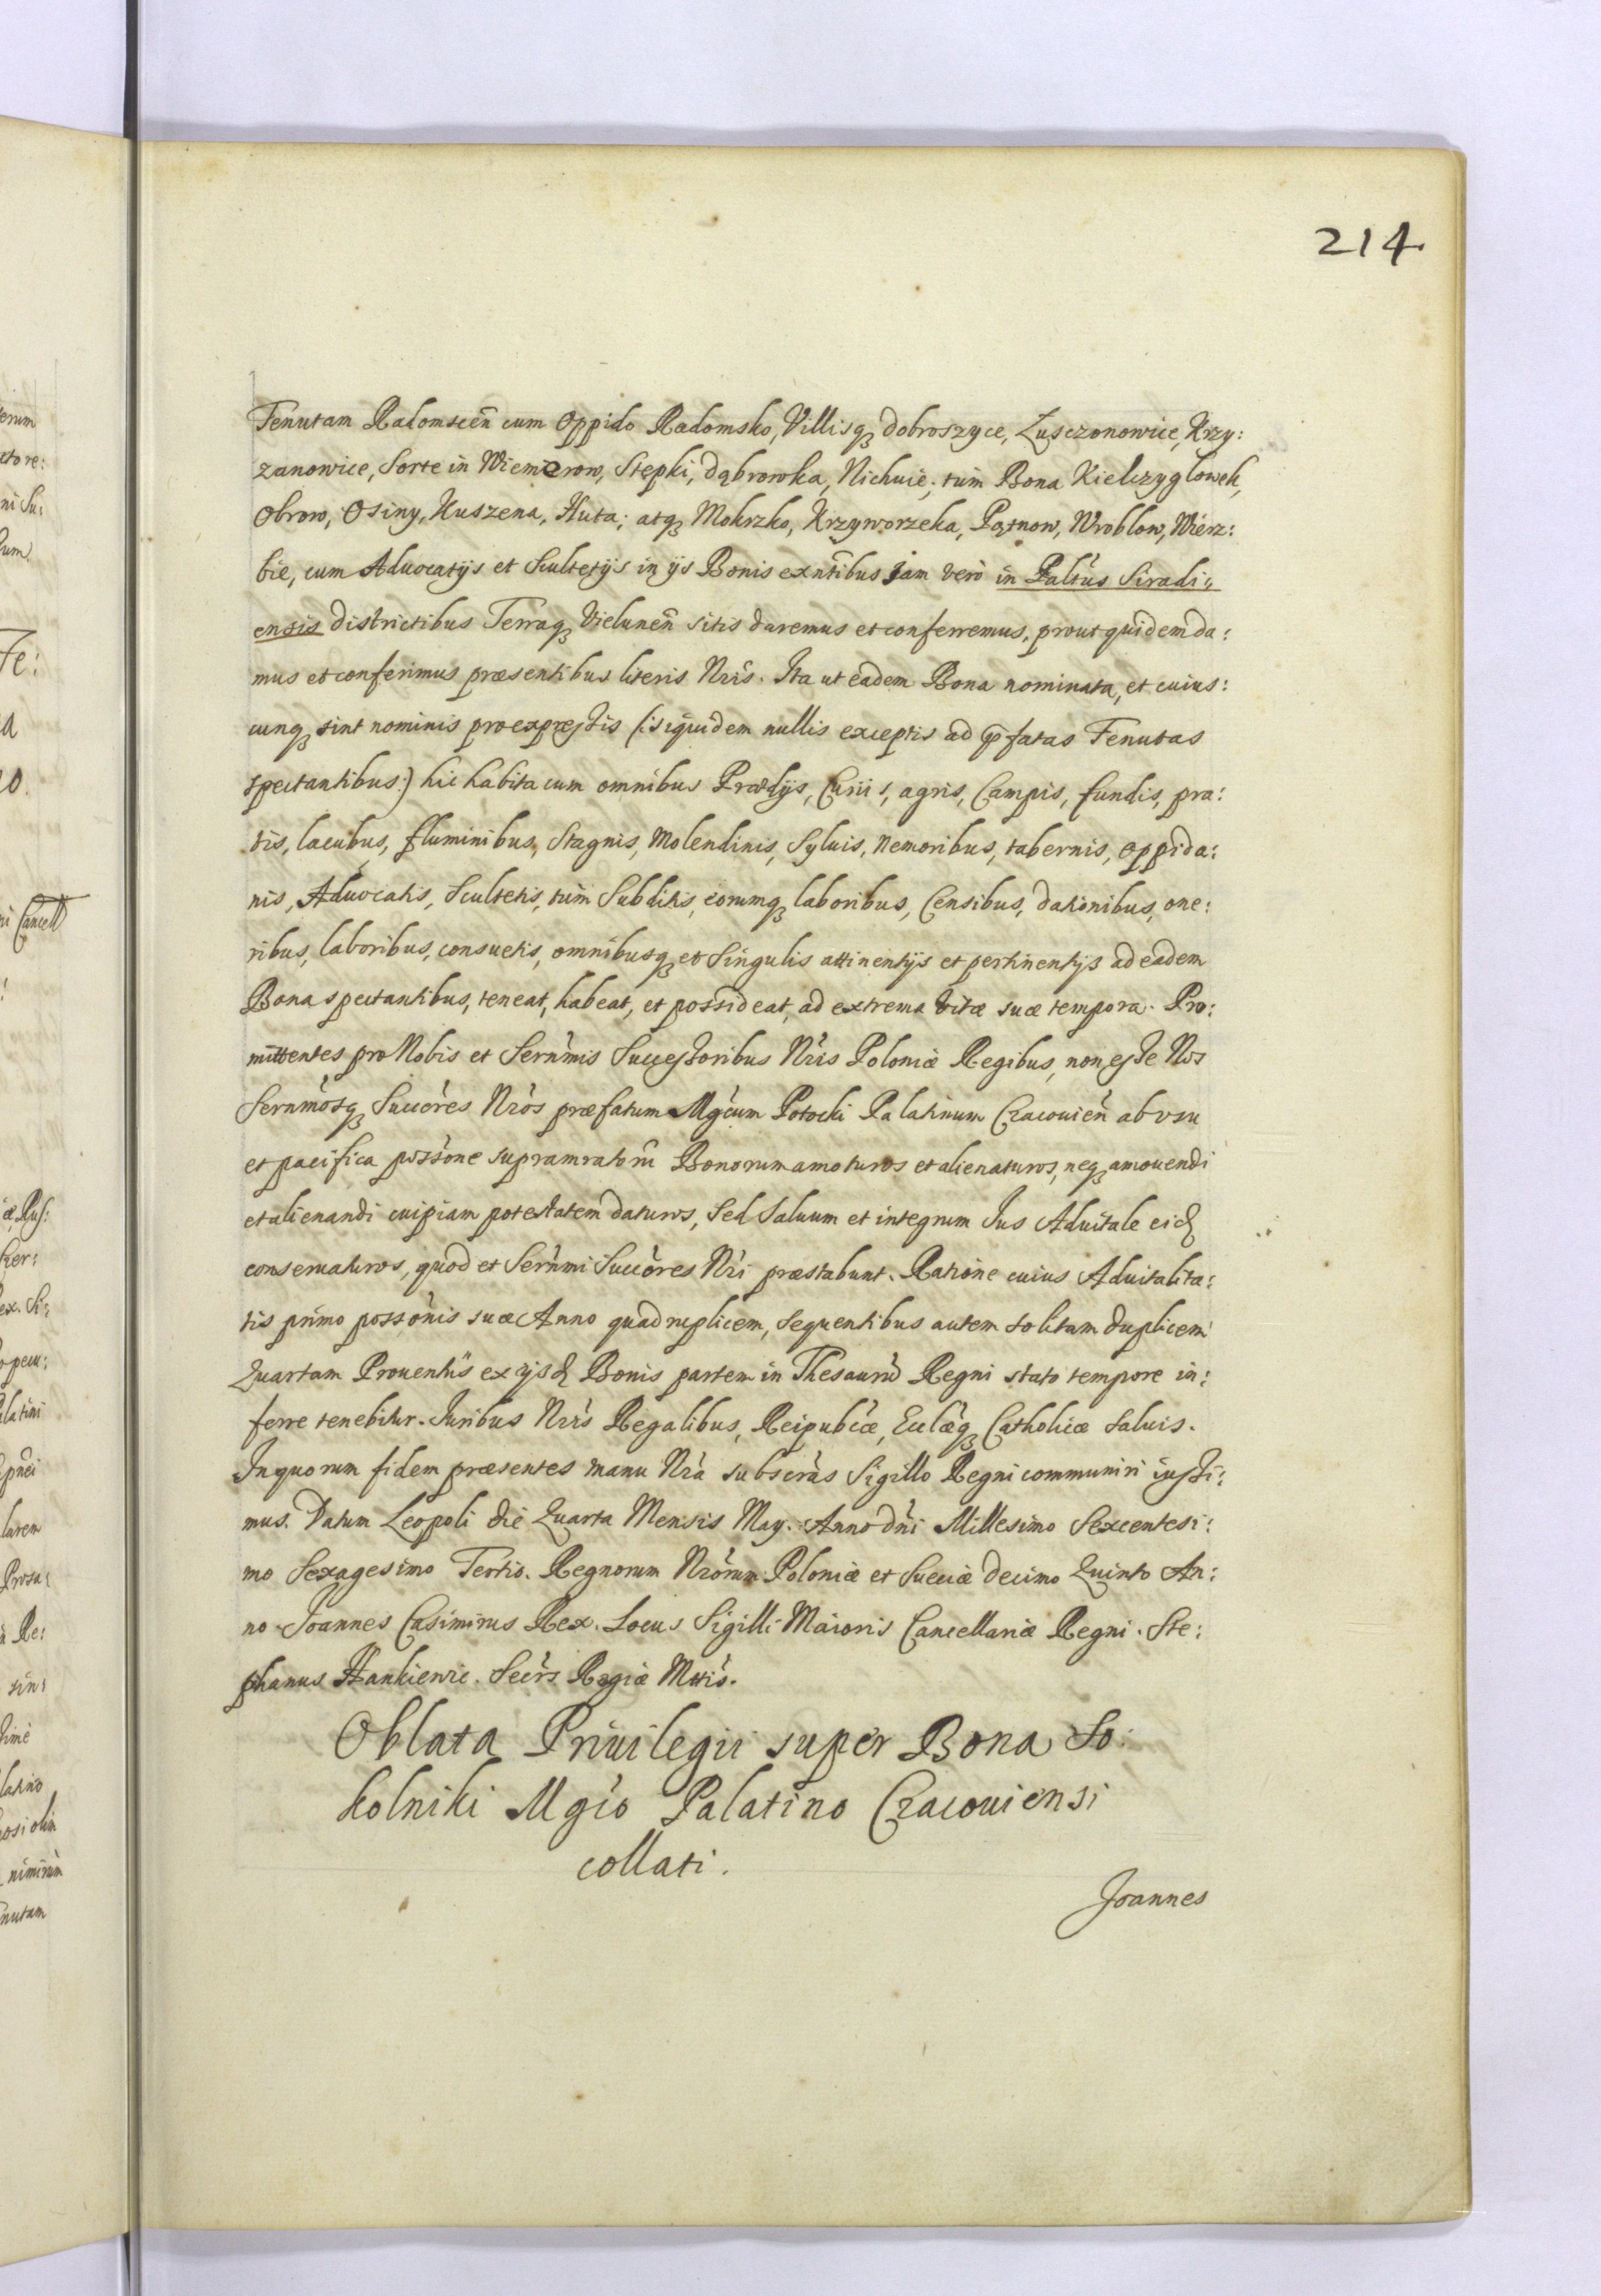 214.
Tenutam Radomscen̄ cum Oppido Radomsko, Villisq₃ dobroszyce, Lusczonowice, Krzy:
zanowice, Sorte in Niemierow, Stępki, dąbrowka, Nichuie; tùm Bona Kielczyglowek,
Obrow, Osiny, Kuszena, Huta; atq₃ Mokrzko, Krzyworzeka, Pątnow, Wroblow, Wierz:
bie, cum Aduocatijs et Scultetijs in ijs Bonis exn̄tibus jam verò in Paltūs Siradi:
ensis districtibus Terraq₃ Vielunen̄ sitis daremus et conferremus, prout quidem da:
mus et conferimus præsentibus literis Nr̄is. Ita ut eadem Bona nominata, et cuius:
cunq₃ sint nominis pro expræssis (: siquidem nullis exceptis ad p̄fatas Tenutas
spectantibus :) hic habita cum omnibus Prædijs, Curiis, agris, Campis, fundis, pra:
tis, lacubus, fluminibus, Stagnis, Molendinis, Syluis, Nemoribus, tabernis, oppida:
nis, Aduocatis, Scultetis, tùm Subditis, eorumq₃ laboribus, Censibus, dationibus, one:
ribus, laboribus, consuetis, omnibusq₃ et singulis attinentijs et pertinentijs ad eadem
Bona spectantibus, teneat, habeat, et possideat, ad extrema vitæ suæ tempora. Pro:
mittentes pro Nobis et Sern̄mis Successoribus Nr̄is Poloniæ Regibus, non esse Nos
Sern̄mosq₃ Succōres Nr̄os præfatum Mgc̄um Potocki Palatinum Cracouien̄ ab vsu
et pacifica possōne supramratorū Bonorum amoturos et alienaturos, neq₃ amouendi
et alienandi cuipiam potestatem daturos, Sed Saluum et integrum Jus Aduitale eid₃
conseruaturos, quod et Sern̄mi Succōres Nr̄i præstabunt. Ratione cuius Aduitalita:
tis primo possōnis suæ Anno quadruplicem, Sequentibus autem solitam duplicem
Quartam Prouentūs ex ijsd₃ Bonis partem in Thesaurū Regni stato tempore in:
ferre tenebitur. Juribus Nr̄is Regalibus, Reipubc̄æ, Eccl̄æq₃ Catholicæ saluis.
In quorum fidem præsentes manu Nr̄a subscr̄as Sigillo Regni communiri jussi:
mus. Datum Leopoli die Quarta Mensis Maÿ. Anno dn̄i Millesimo Sexcentesi:
mo Sexagesimo Tertio. Regnorum Nr̄orum Poloniæ et Sueciæ decimo Quinto An:
no. Joannes Casimirus Rex. Locus Sigilli Maioris Cancellariæ Regni. Ste:
phanus Hankiewic. Secr̄s Regiæ Mttis̄.
Oblata Priuilegii super Bona So:
kolniki Mgc̄o Palatino Cracouiensi
collati.
Joannes